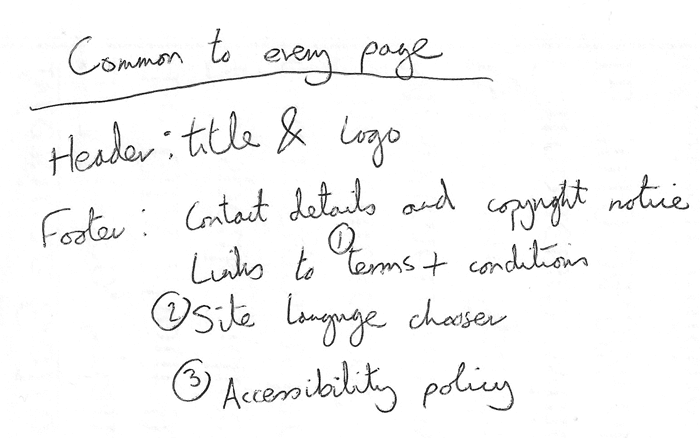 Common to every page
Header: title & logo
Footer: Contact details and copyright notice
Links to ① terms + conditions
② Site Languge chooser
③ Accessibility policy